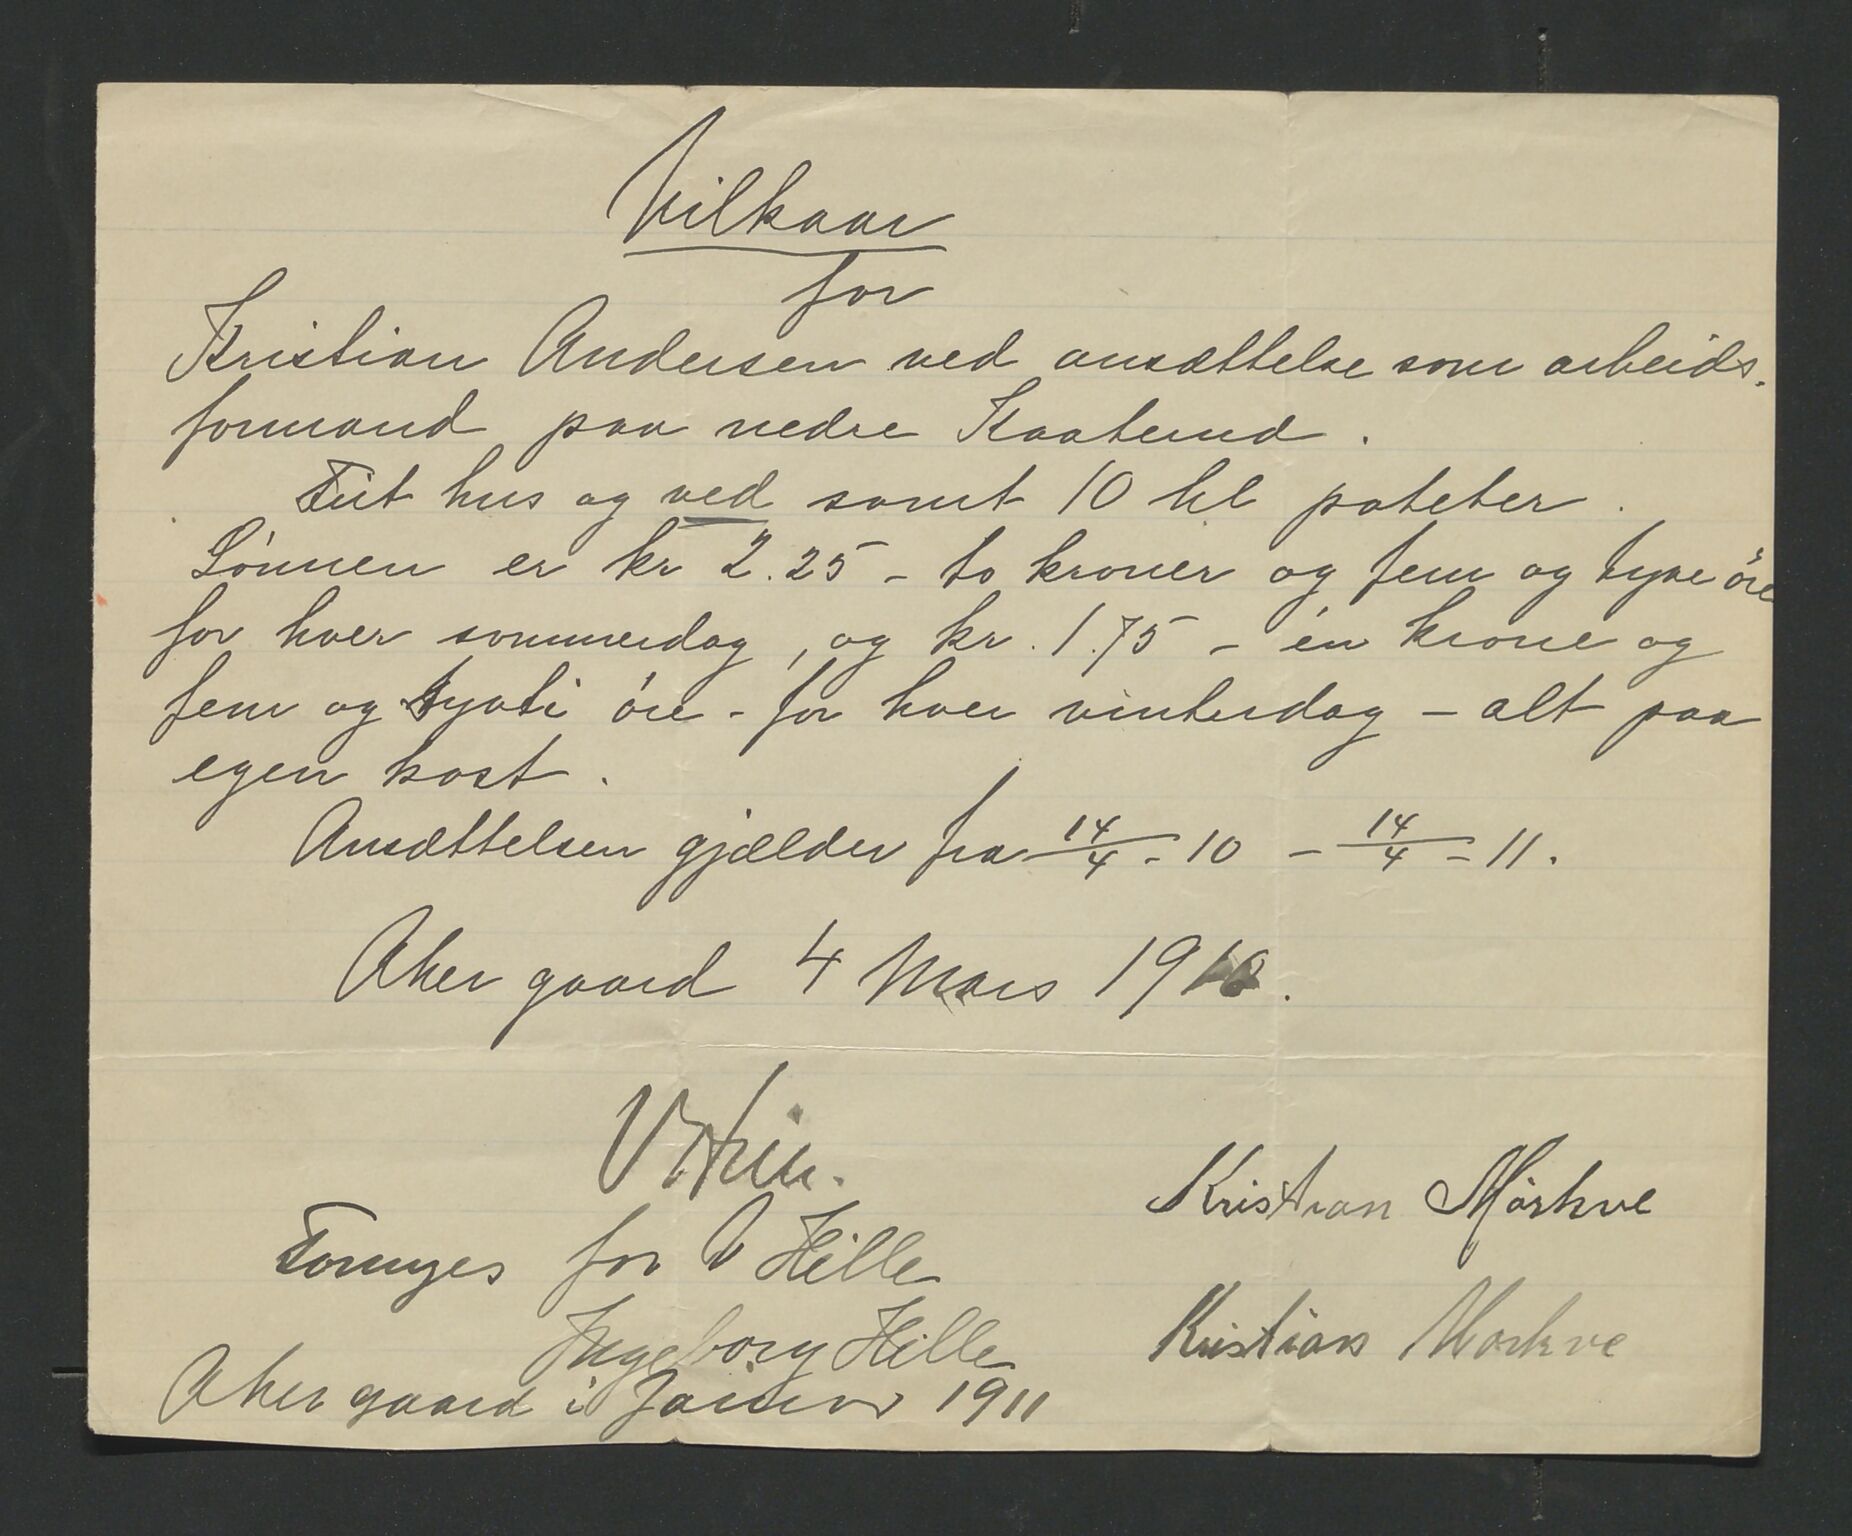 Vilkaar
for
Kristian Andersen ved ansættelse som arbeids-
formand paa nedre Kaaterud.
Frit hus og ved samt 10 hl poteter.
Lönnen er kr 2.25 - to kroner og fem og tyve öre
for hver sommerdag, og kr. 1.75 - én krone og
fem og sytti öre - for hver vinterdag - alt paa
egen kost.
Ansættelsen gjælder fra 14/4 - 10 - 14/4 - 11.
Aker gaard 4 Mars 1910.
V Hille.
Kristian Mörkve
Fornyes for V Hille
Ingeborg Hille
Kristian Morkve
Aker gaard i Januar 1911